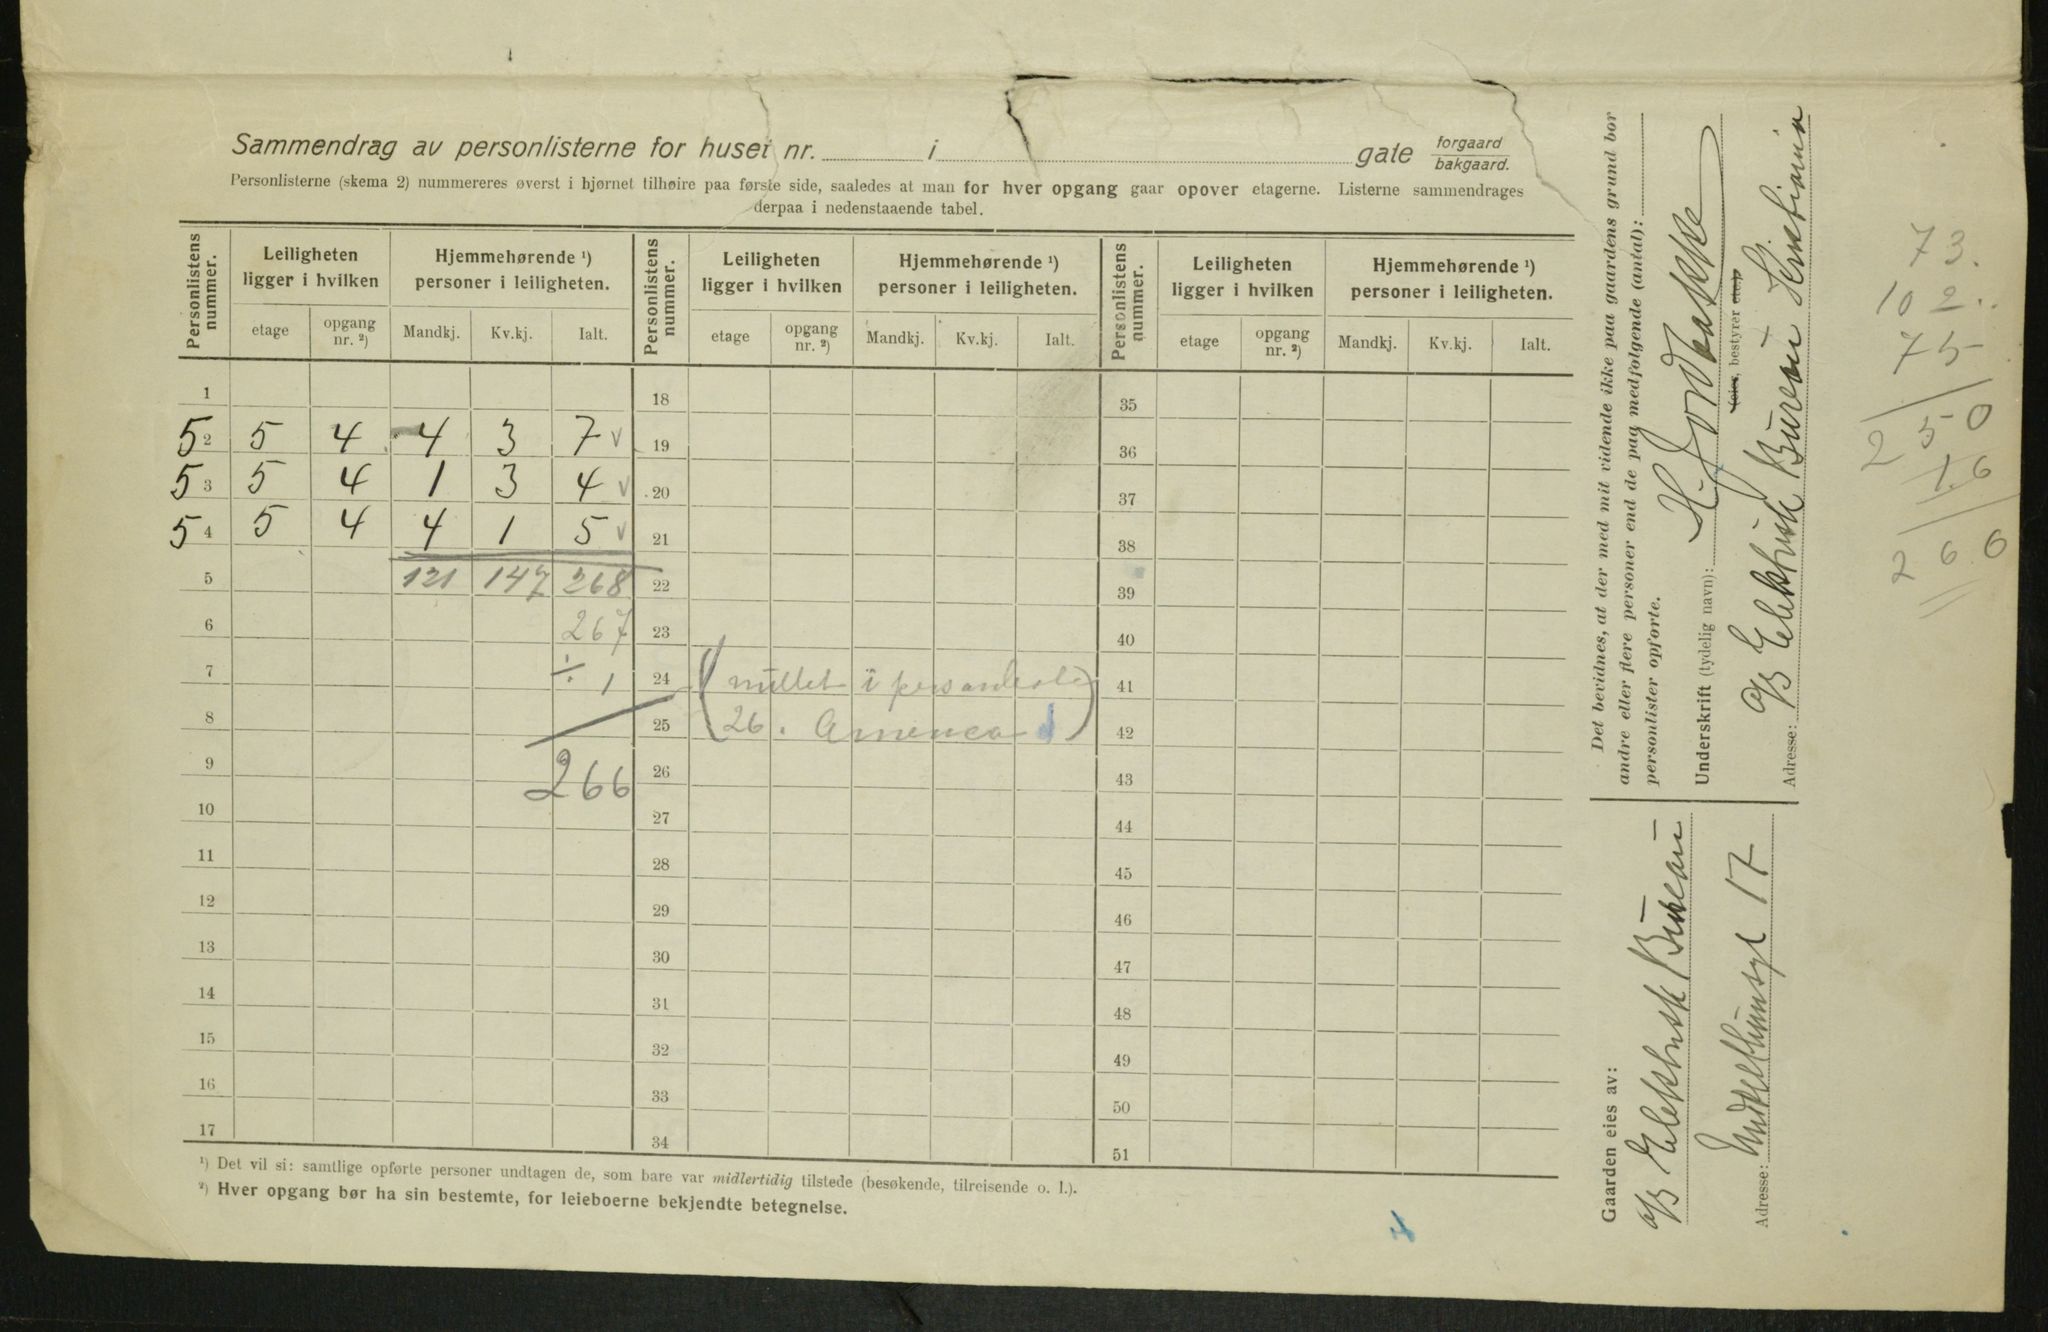 Sammendrag av personlisterne for huset nr. i gate forgaard bakgaard.
Personlisterne (skema 2) nummereres øverst i hjørnet tilhøire paa første side, saaledes at man for hver opgang gaar opover etagerne. Listerne sammendrages
derpaa i nedenstaaende tabel.
Personlistens nummer. Leiligheten ligger i hvilken Hjemmehørende ¹) personer i leiligheten. Personlistens nummer. Leiligheten ligger i hvilken Hjemmehørende ¹) personer i leiligheten. Personlistens nummer. Leiligheten ligger i hvilken Hjemmehørende ¹) personer i leiligheten.
etage opgang nr. ²) Mandkj. Kv.kj. Ialt. etage opgang nr. ²) Mandkj. Kv.kj. Ialt. etage opgang nr. ²) Mandkj. Kv.kj. Ialt.
1 18 35
52 5 4 4 3 7 v 19 36
53 5 4 1 3 4 v 20 37
54 5 4 4 1 5 v 21 38
5 121 147 268 22 39
6 267 23 40
7 ÷ 1 24 (nullet i 41
8 25 26. America) 42
9 266 26 43
10 27 44
11 28 45
12 29 46
13 30 47
14 31 48
15 32 49
16 33 50
17 34 51
¹) Det vil si: samtlige opførte personer undtagen de, som bare var midlertidig tilstede (besøkende, tilreisende o. l.).
²) Hver opgang bør ha sin bestemte, for leieboerne bekjendte betegnelse.
Det bevidnes, at der med mit vidende ikke paa gaardens grund bor
andre eller flere personer end de paa medfølgende (antal):
personlister opførte.
Underskrift (tydelig navn): H. Jordbakke
(eier, bestyrer etc.).
Adresse: A/B Elektrisk Bureau Kristiania
Gaarden eies av:
A/B Elektrisk Bureau
Adresse: Middelthunsgt 17
73.
102.
75
250
16
266